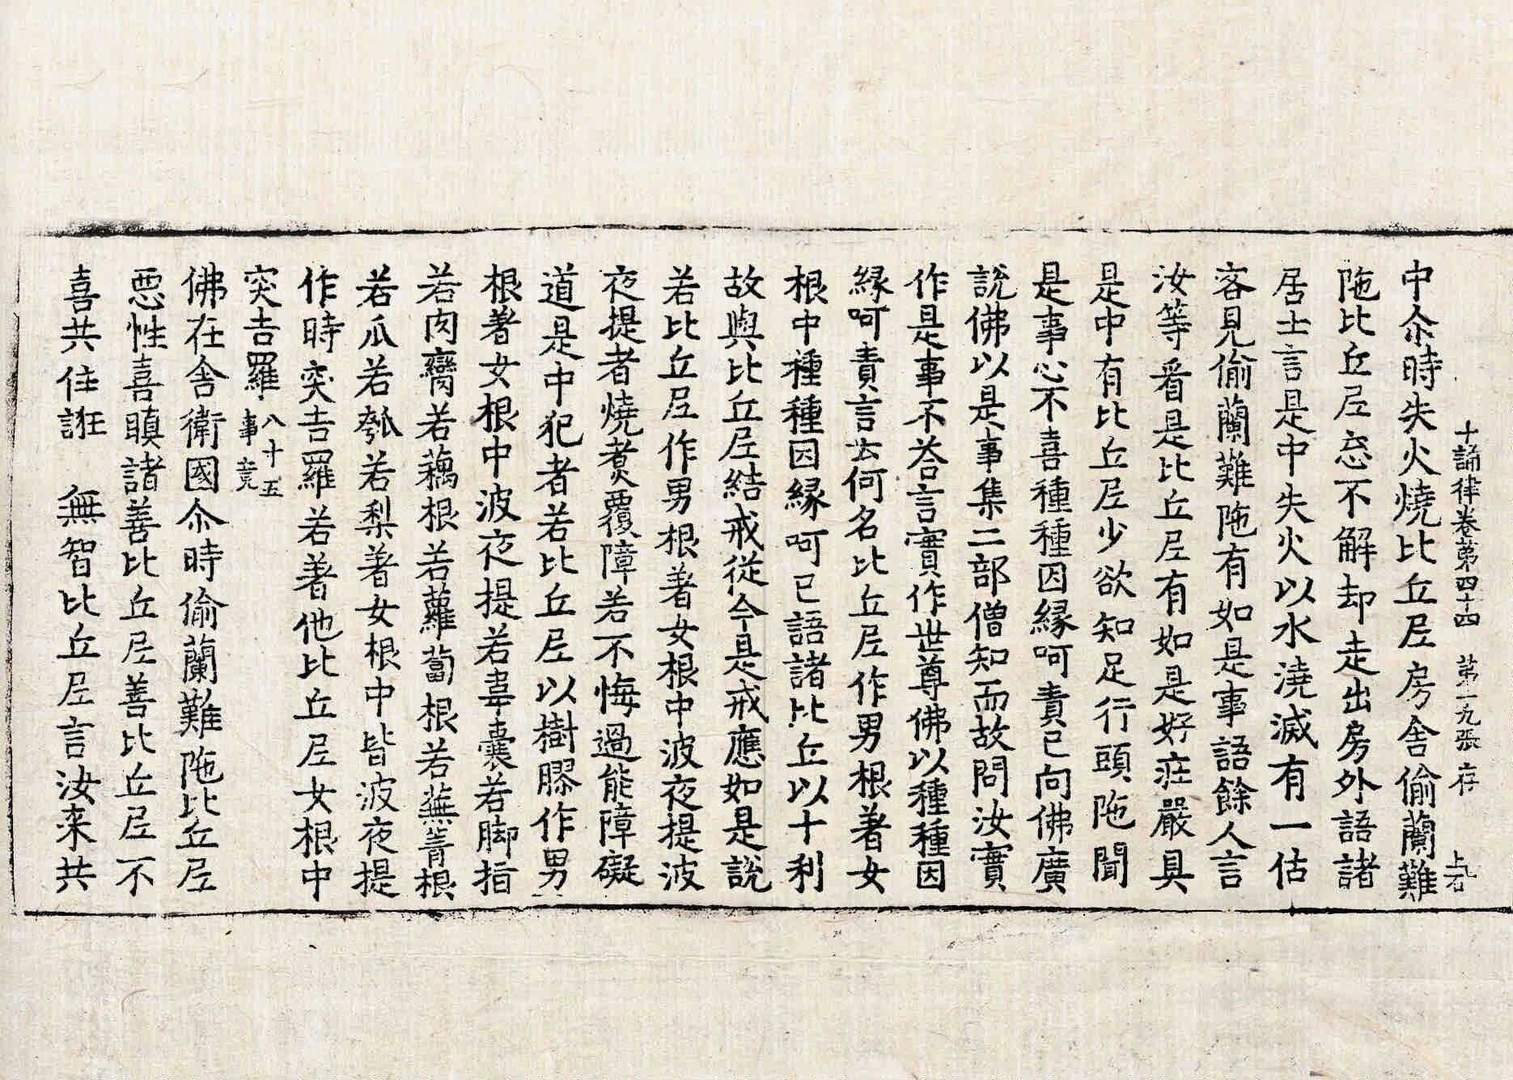 十誦律卷第四十四 第一九張 存
中尒時失火燒比丘尼房舍偷蘭難
陁比丘尼忩不解却走出房外語諸
居士言是中失火以水澆滅有一估
客見偷蘭難陁有如是事語餘人言
汝等看是比丘尼有如是好莊嚴具
是中有比丘尼少欲知足行頭陁聞
是事心不喜種種因緣呵責已向佛廣
說佛以是事集二部僧知而故問汝實
作是事不荅言實作世尊佛以種種因
緣呵責言云何名比丘尼作男根著女
根中種種因緣呵已語諸比丘以十利
故與比丘尼結戒從今是戒應如是說
若比丘尼作男根著女根中波夜提波
夜提者燒煑覆障若不悔過能障礙
道是中犯者若比丘尼以樹膠作男
根著女根中波夜提若韋囊若脚指
若肉臠若藕根若蘿蔔根若蕪菁根
若瓜若瓠若梨著女根中皆波夜提
作時突吉羅若著他比丘尼女根中
突吉羅 八十五事竟
佛在舍衛國尒時偷蘭難陁比丘尼
惡性喜瞋諸善比丘尼善比丘尼不
喜共住誑 無智比丘尼言汝来共